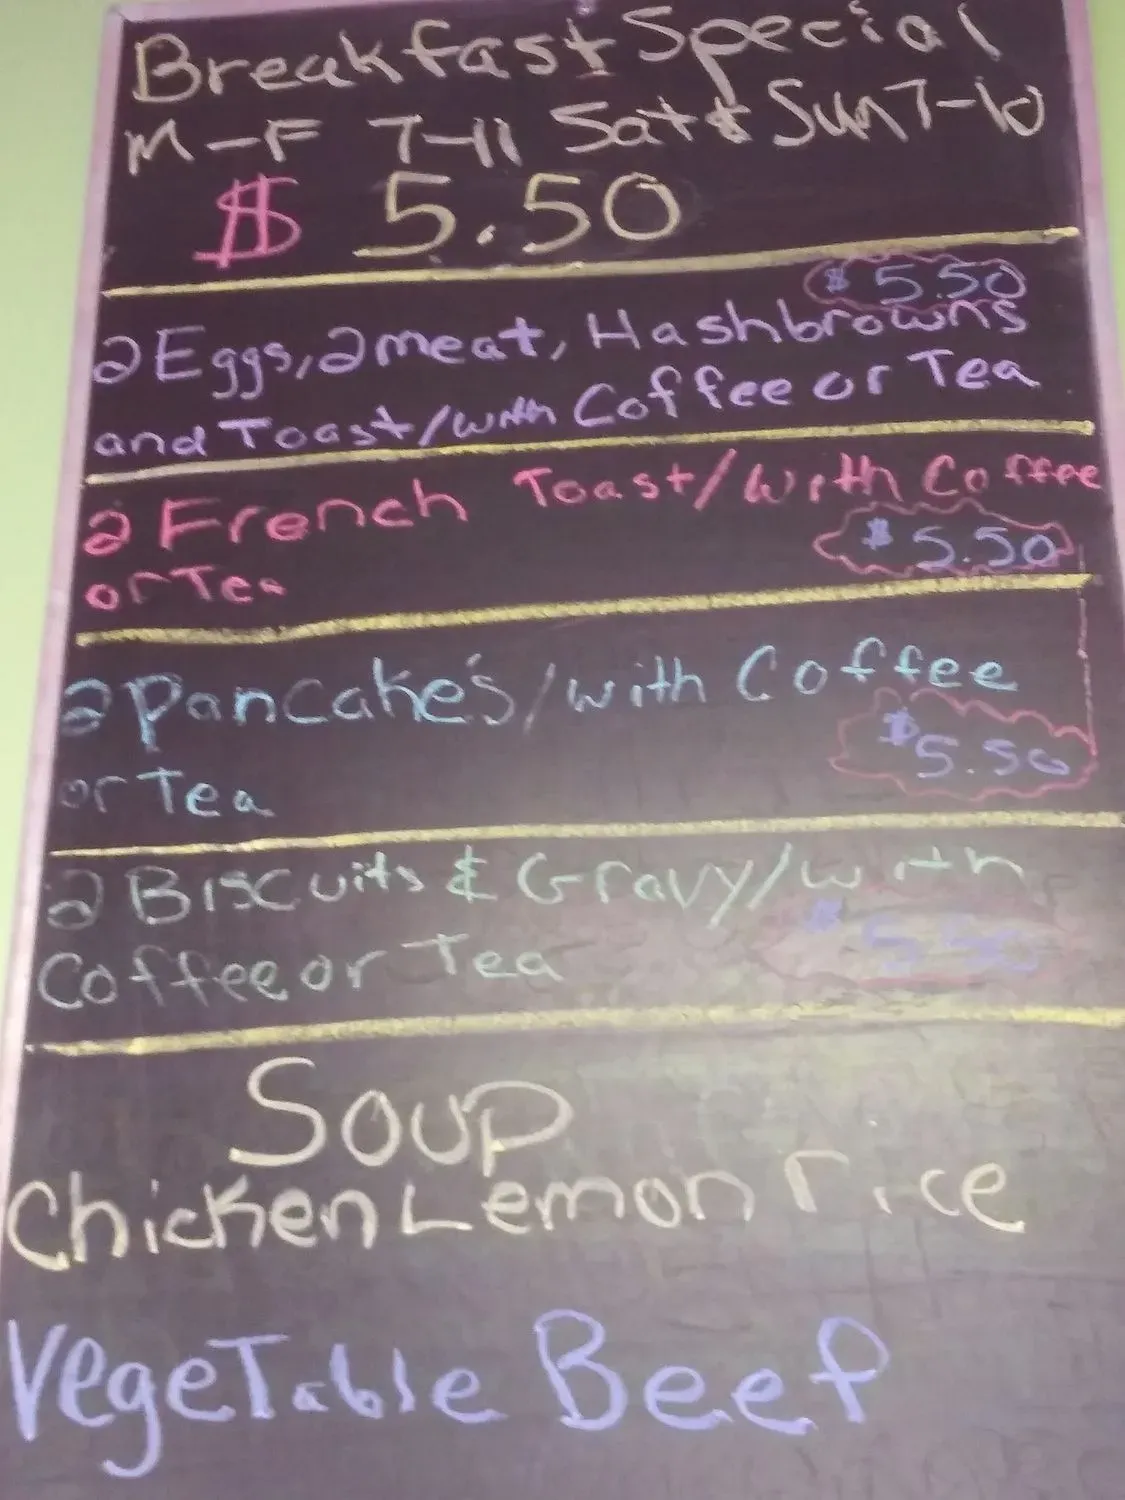 Breakfast Special
M-F 7-11 Sat & Sun 7-10
$ 5.50
$ 5.50
2 Eggs, 2 meat, Hashbrowns
and Toast/with Coffee or Tea
2 French Toast/with Coffee
or Tea $ 5.50
2 Pancake's/with Coffee
or Tea $ 5.50
2 Biscuits & Gravy/with
Coffee or Tea $ 5.50
Soup
Chicken Lemon rice
VegeTable Beef